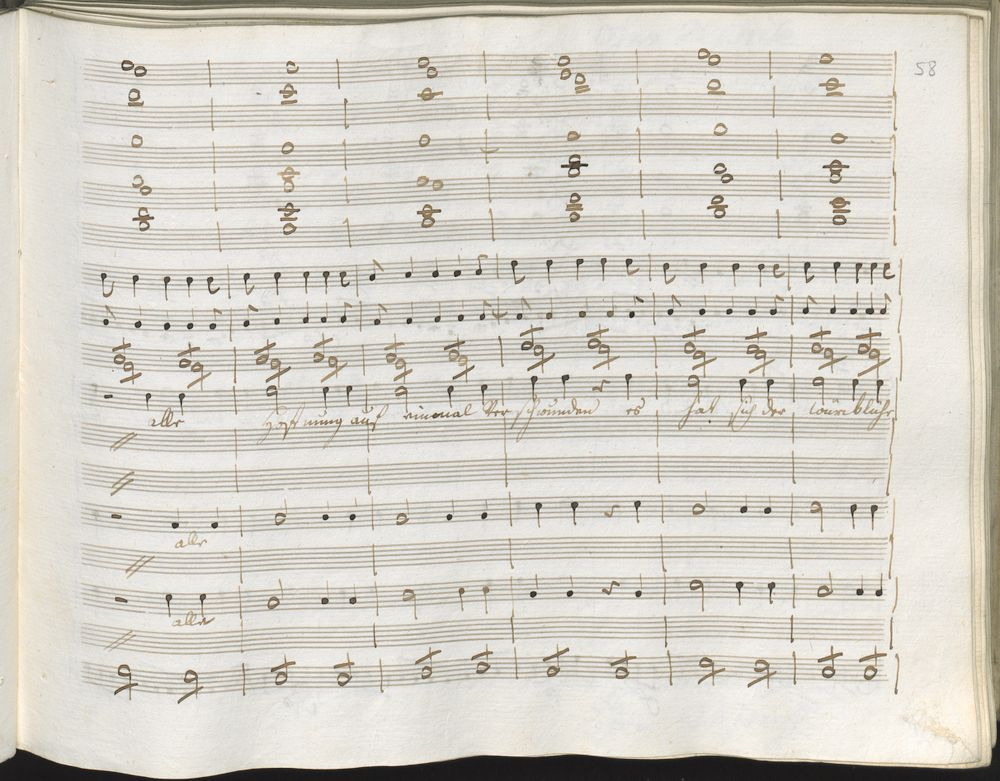 58
alle Hoffnung auf einmal Ver schwunden es hat sich der
alle
alle